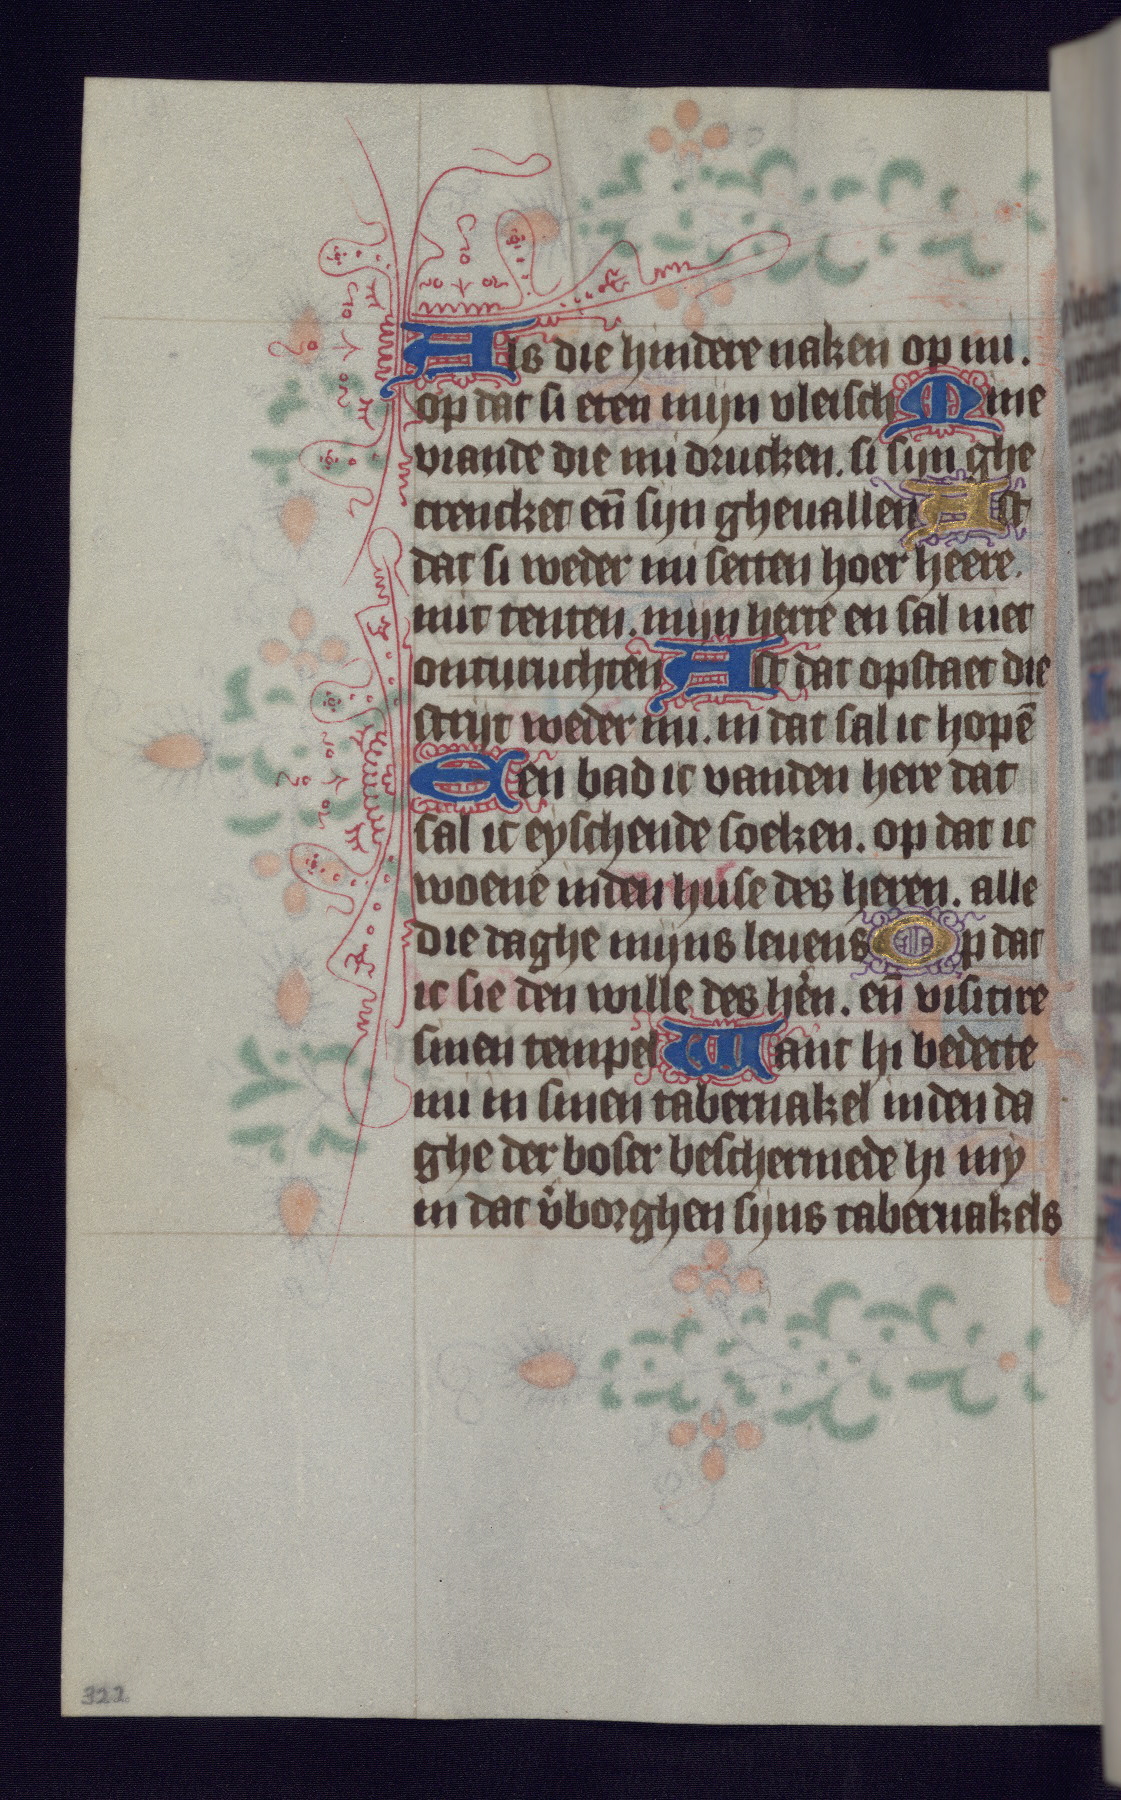 Als die hindere naken op mi.
op dat si eten mijn vleisch Mine
viande die mi drucken. si sijn ghe
crencket en̄ sijn gheuallen Ist
dat si weder mi setten hoer heere.
mit tenten. mijn herte en sal niet
onturuchten Ist dat opstaet die
strijt weder mi. in dat sal ic hopē
Een bad ic vanden here dat
sal ic eyschende soeken. op dat ic
woene inden huse des heren. alle
die daghe mijns leuens Op dat
ic sie den wille des hēn. en̄ visitire
sinen tempel Want hi bedecte
mi in sinen tabernakel inden da
ghe der boser beschermede hi my
in dat v̄borghen sijns tabernakels
322